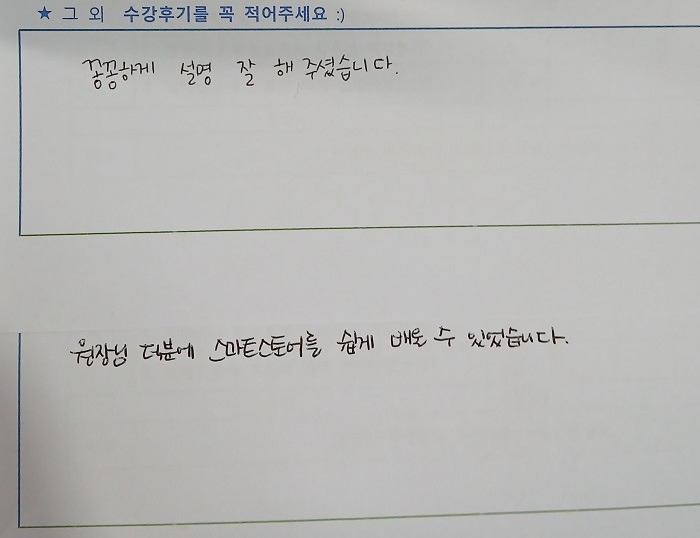 ★ 그 외 수강후기를 꼭 적어주세요 :)
꼼꼼하게 설명 잘 해 주셨습니다.
원장님 덕분에 스마트스토어를 쉽게 배울 수 있었습니다.